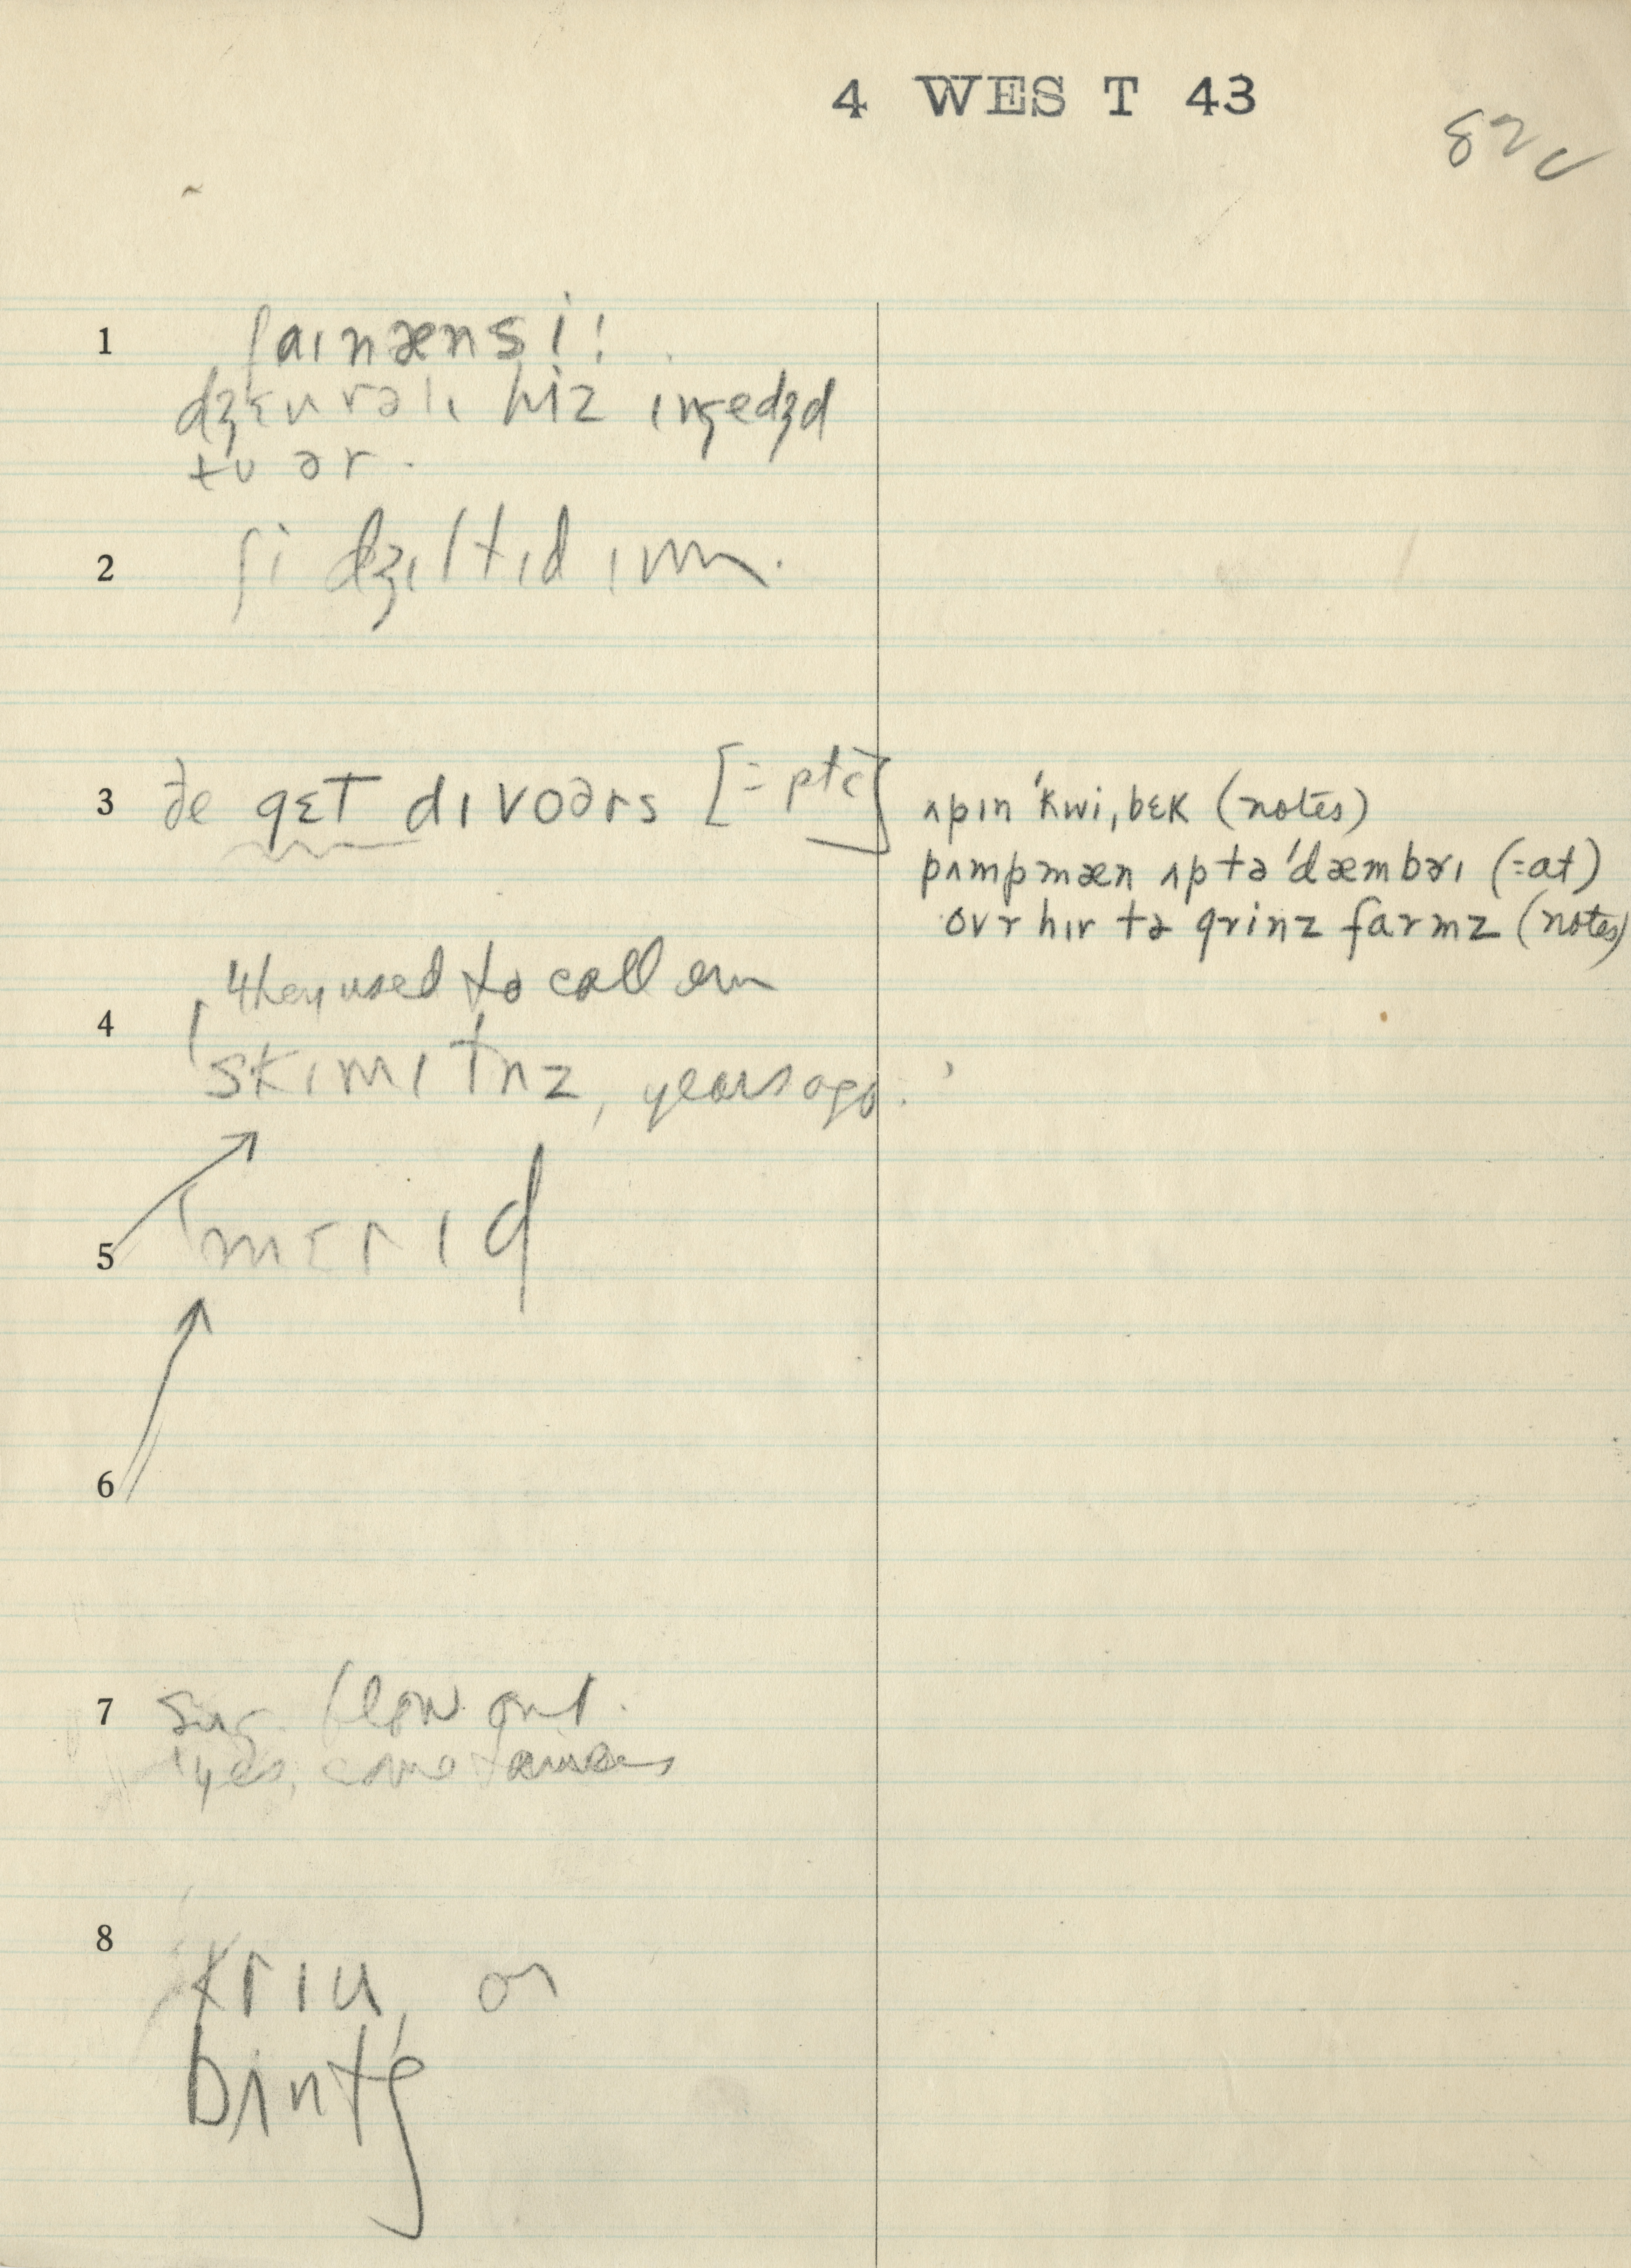 4 WEST 43
82c
1 faınænsi!
dʒɛnrəlı hiz ıngedʒd
tu ər.
2 ʃi dʒıltıd ım.
3 ðe gɛt dıvoərs [= ptc]
ʌpın 'kwi,bɛk (notes)
pʌmpmæn ʌptə 'dæmbərı (=at)
ovr hır tə grinz farmz (notes)
4 'they used to call em
skımıtnz, years ago.'
5 'mɛrıd
6
7 sug. blow out.
'yes, some
8 krıu, or
bʌntʃ